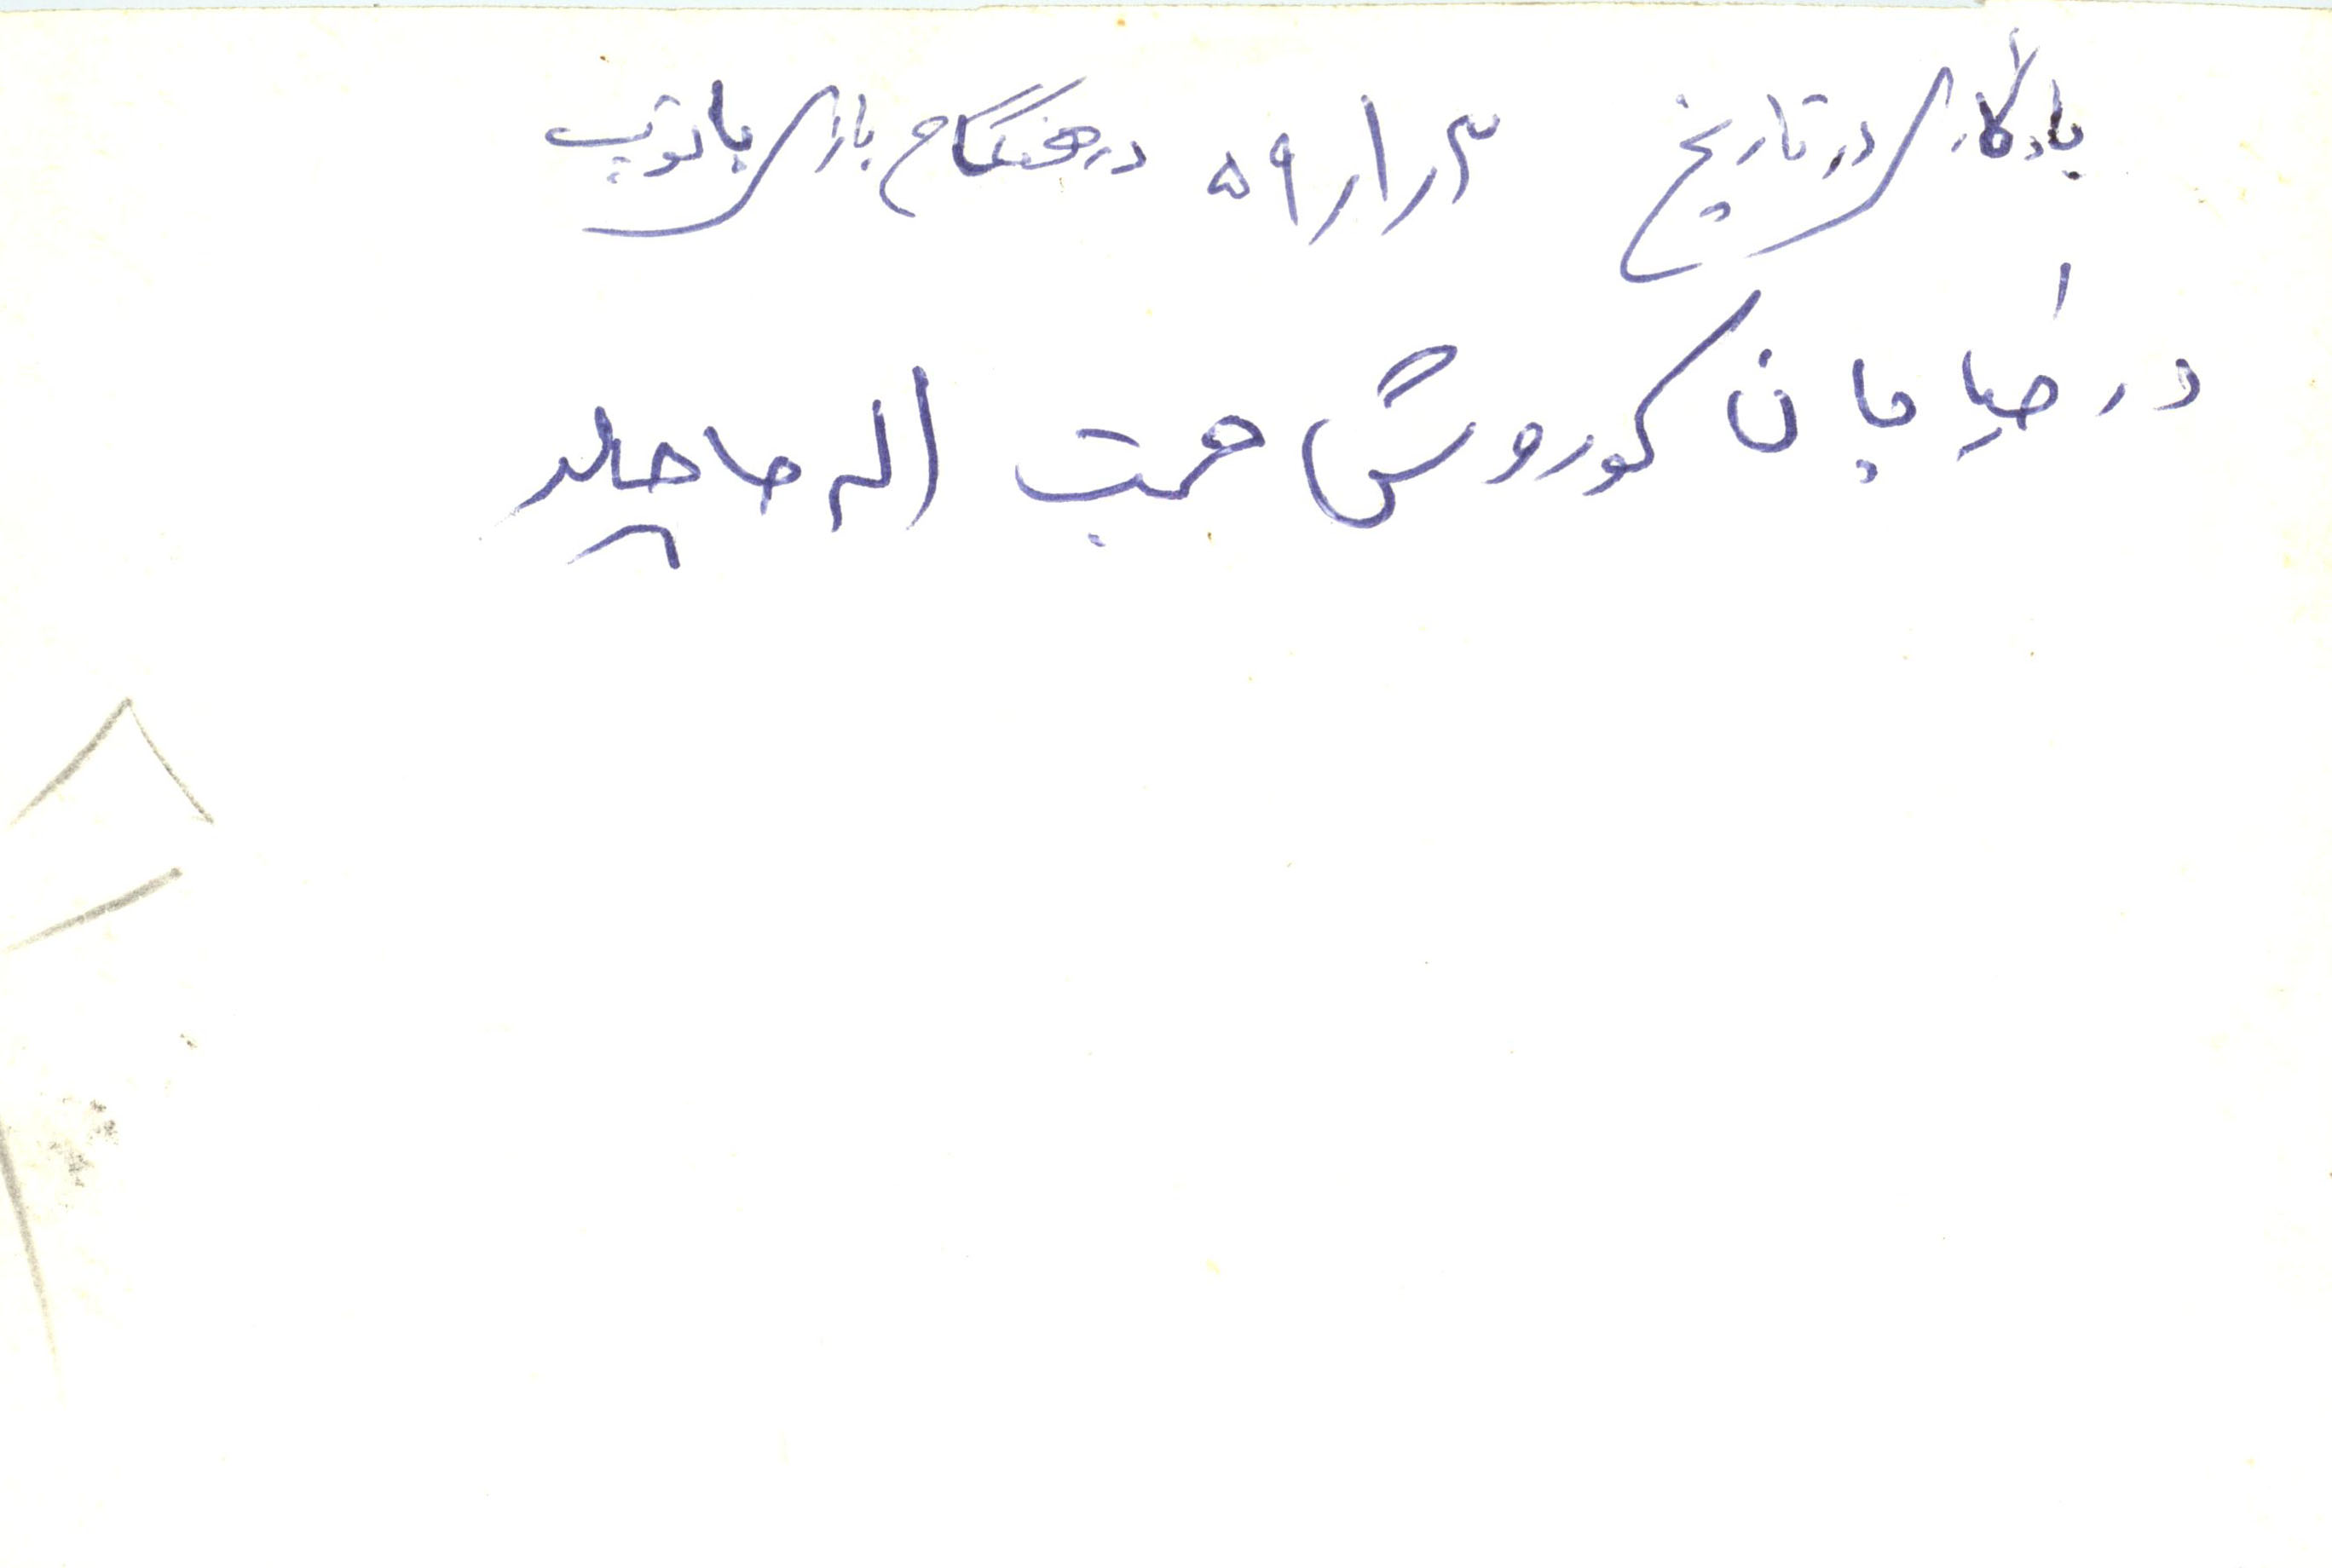 یادگاری در تاریخ ۳ر۱ر۵۹ در هنگام بازی با توپ
در خیابان کوروش حجت اله حاجیلر